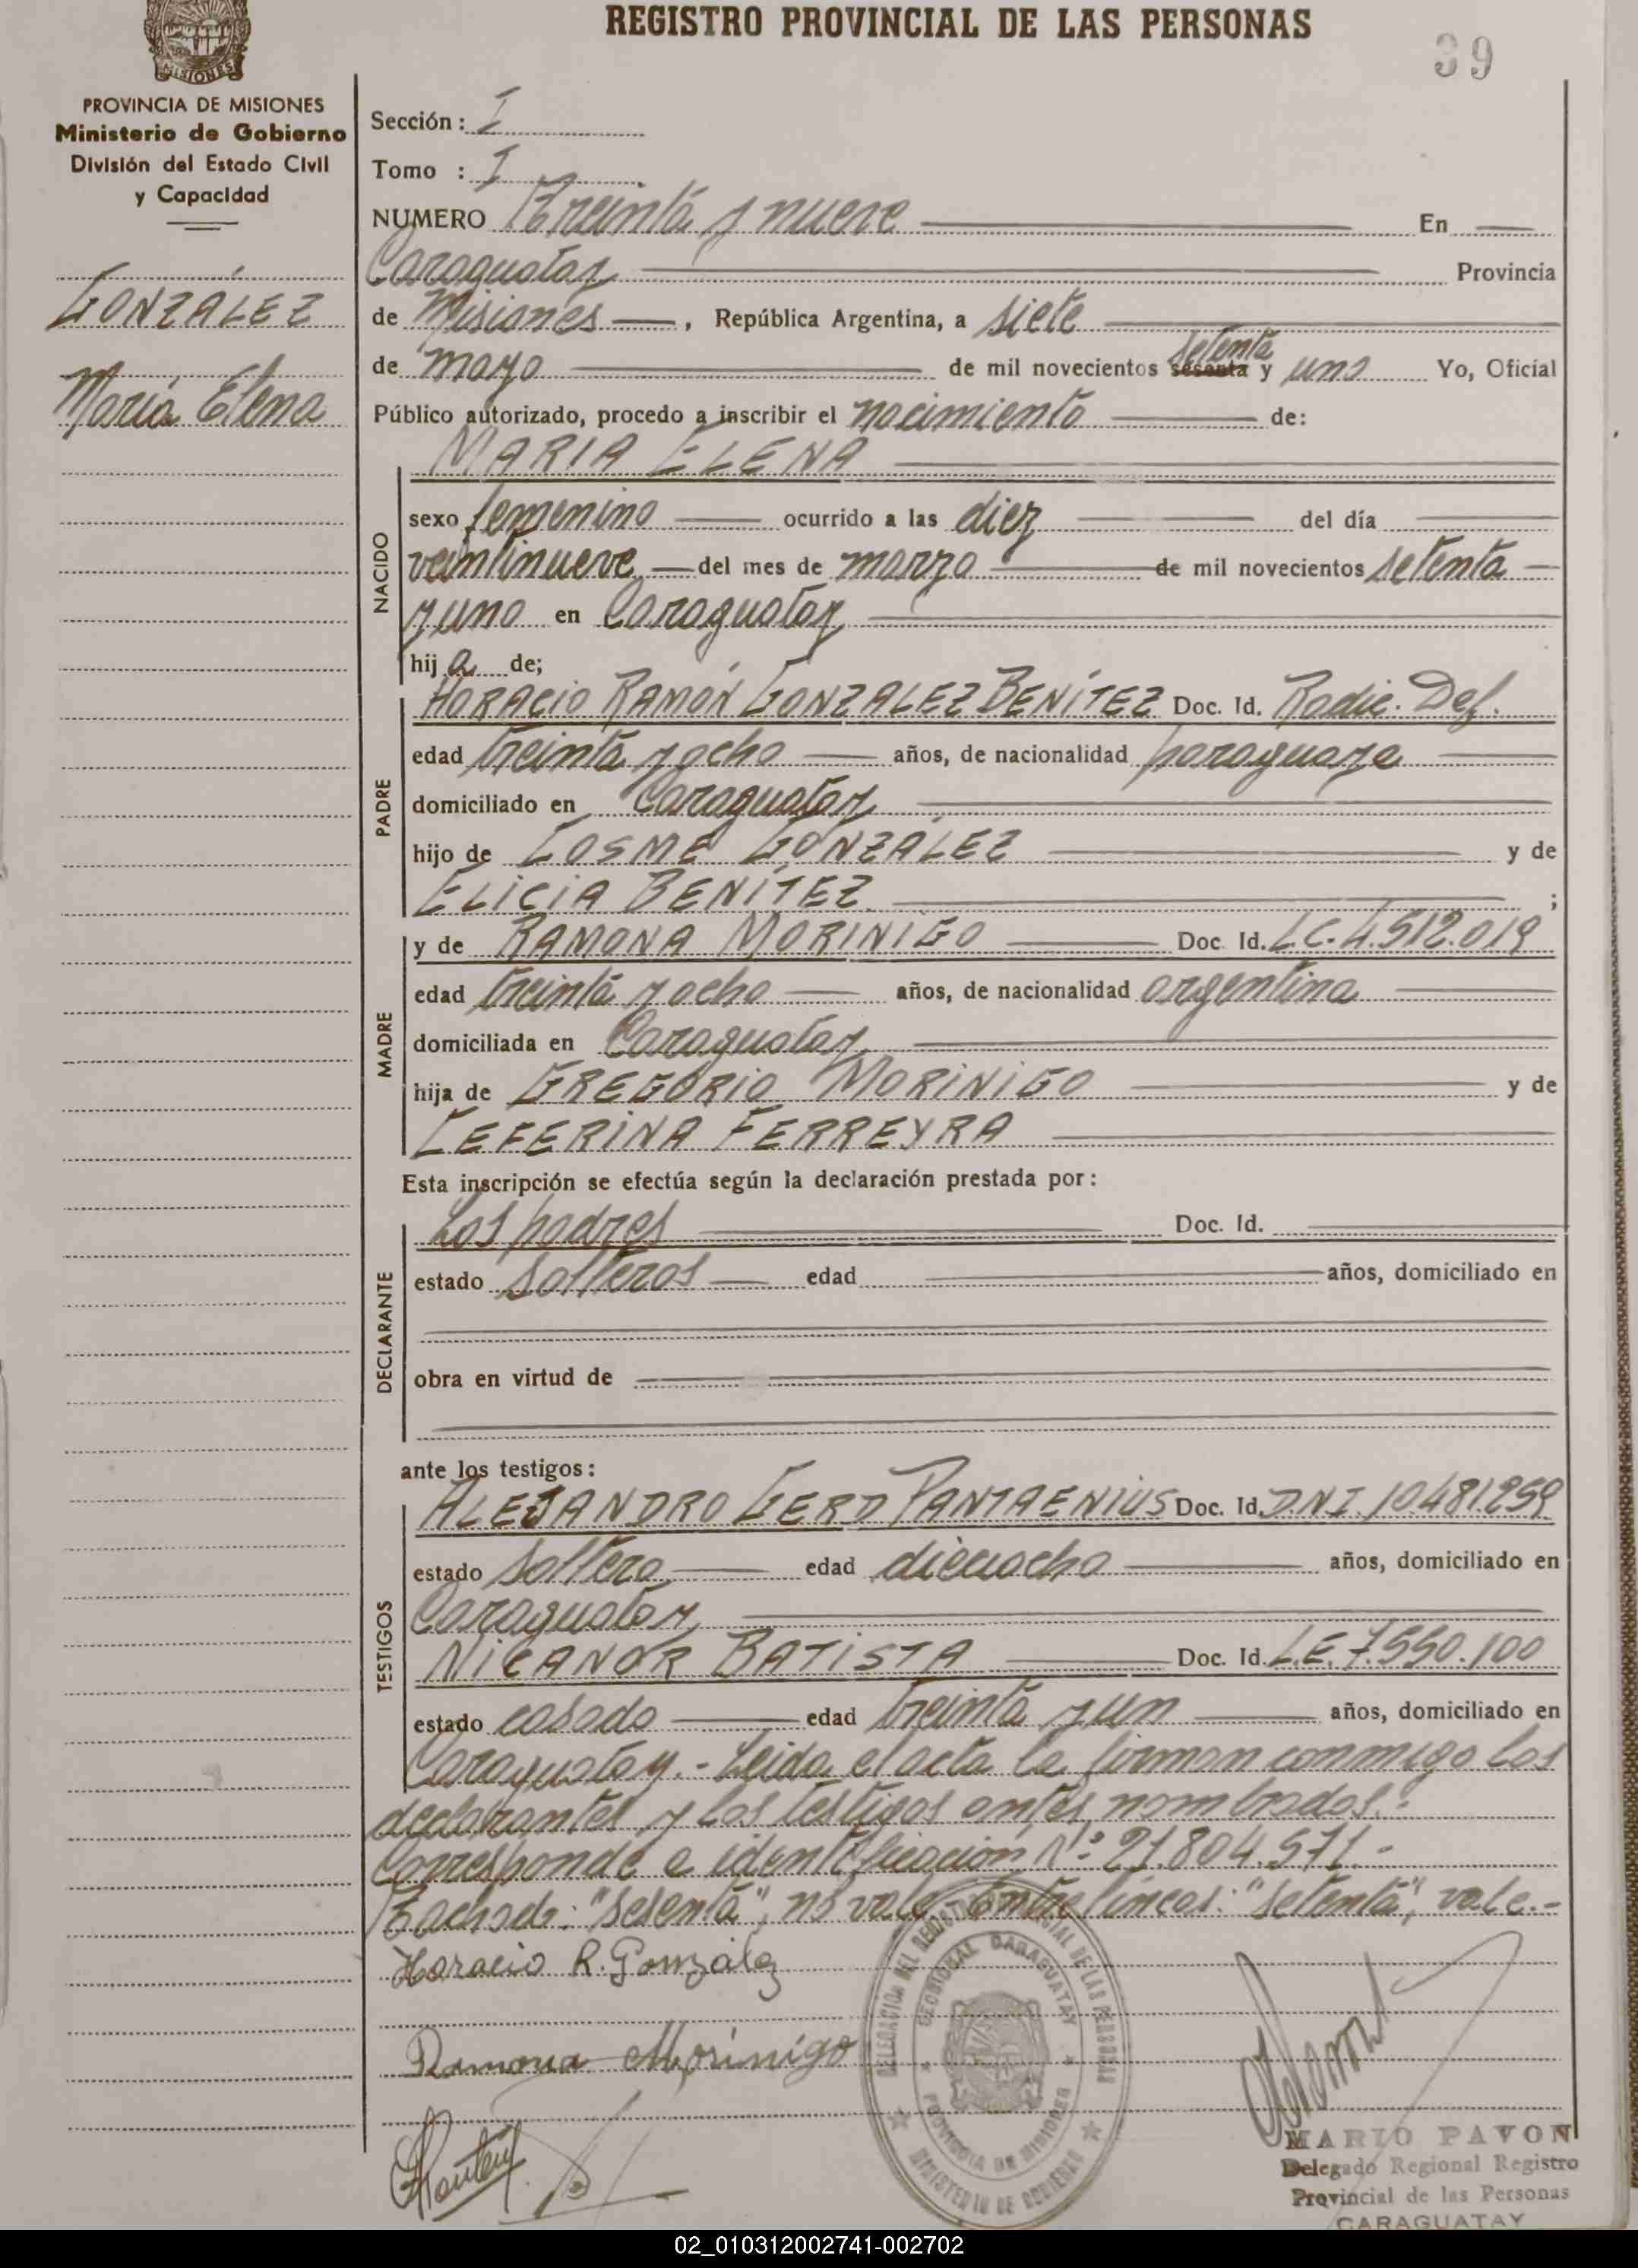 REGISTRO PROVINCIAL DE LAS PERSONAS
39
MISIONES
PROVINCIA DE MISIONES
Ministerio de Gobierno
División del Estado Civil
y Capacidad
GONZÁLEZ
María Elena
Sección: I
Tomo : I
NUMERO Treinta y nueve En
Caraguatay Provincia
de Misiones, República Argentina, a siete
setenta
de mayo de mil novecientos sesenta y uno Yo, Oficial
Público autorizado, procedo a inscribir el nacimiento de:
MARIA ELENA
NACIDO
sexo femenino ocurrido a las diez del día
veintinueve del mes de marzo de mil novecientos setenta
y uno en Caraguatay
hija de;
PADRE
HORACIO RAMÓN GONZALEZ BENÍTEZ Doc. Id. Radic. Def.
edad treinta y ocho años, de nacionalidad paraguaya
domiciliado en Caraguatay
hijo de COSME GONZÁLEZ y de
ELICIA BENÍTEZ ;
MADRE
y de RAMONA MORINIGO Doc. Id. L.C. 4.512.019
edad treinta y ocho años, de nacionalidad argentina
domiciliada en Caraguatay
hija de GREGORIO MORINIGO y de
CEFERINA FERREYRA
Esta inscripción se efectúa según la declaración prestada por:
DECLARANTE
Los padres Doc. Id.
estado solteros edad años, domiciliado en
obra en virtud de
ante los testigos:
TESTIGOS
ALEJANDRO GERD PANTAENIUS Doc. Id. D.N.I. 10481259
estado soltero edad dieciocho años, domiciliado en
Caraguatay
NICANOR BATISTA Doc. Id. L.E. 7.550.100
estado casado edad treinta y un años, domiciliado en
Caraguatay.- Leida el acta la firman conmigo los
declarantes y los testigos antes nombrados.-
Corresponde a identificación Nº: 21.804.571.-
Tachado: "sesenta", no vale, entre líneas: "setenta", vale.-
Horacio R. González
Ramona Morinigo
DELEGACION DEL REGISTRO PROVINCIAL DE LAS PERSONAS
REGIONAL CARAGUATAY
PROVINCIA DE MISIONES
MINISTERIO DE GOBIERNO
MARIO PAVON
Delegado Regional Registro
Provincial de las Personas
CARAGUATAY
02_010312002741-002702